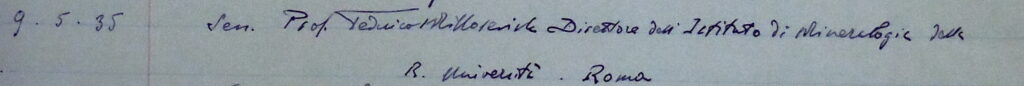 9. 5. 35 Sen. Prof. Federico Millosevich Direttore dell' Istituto di Mineralogia della
R. Università. Roma